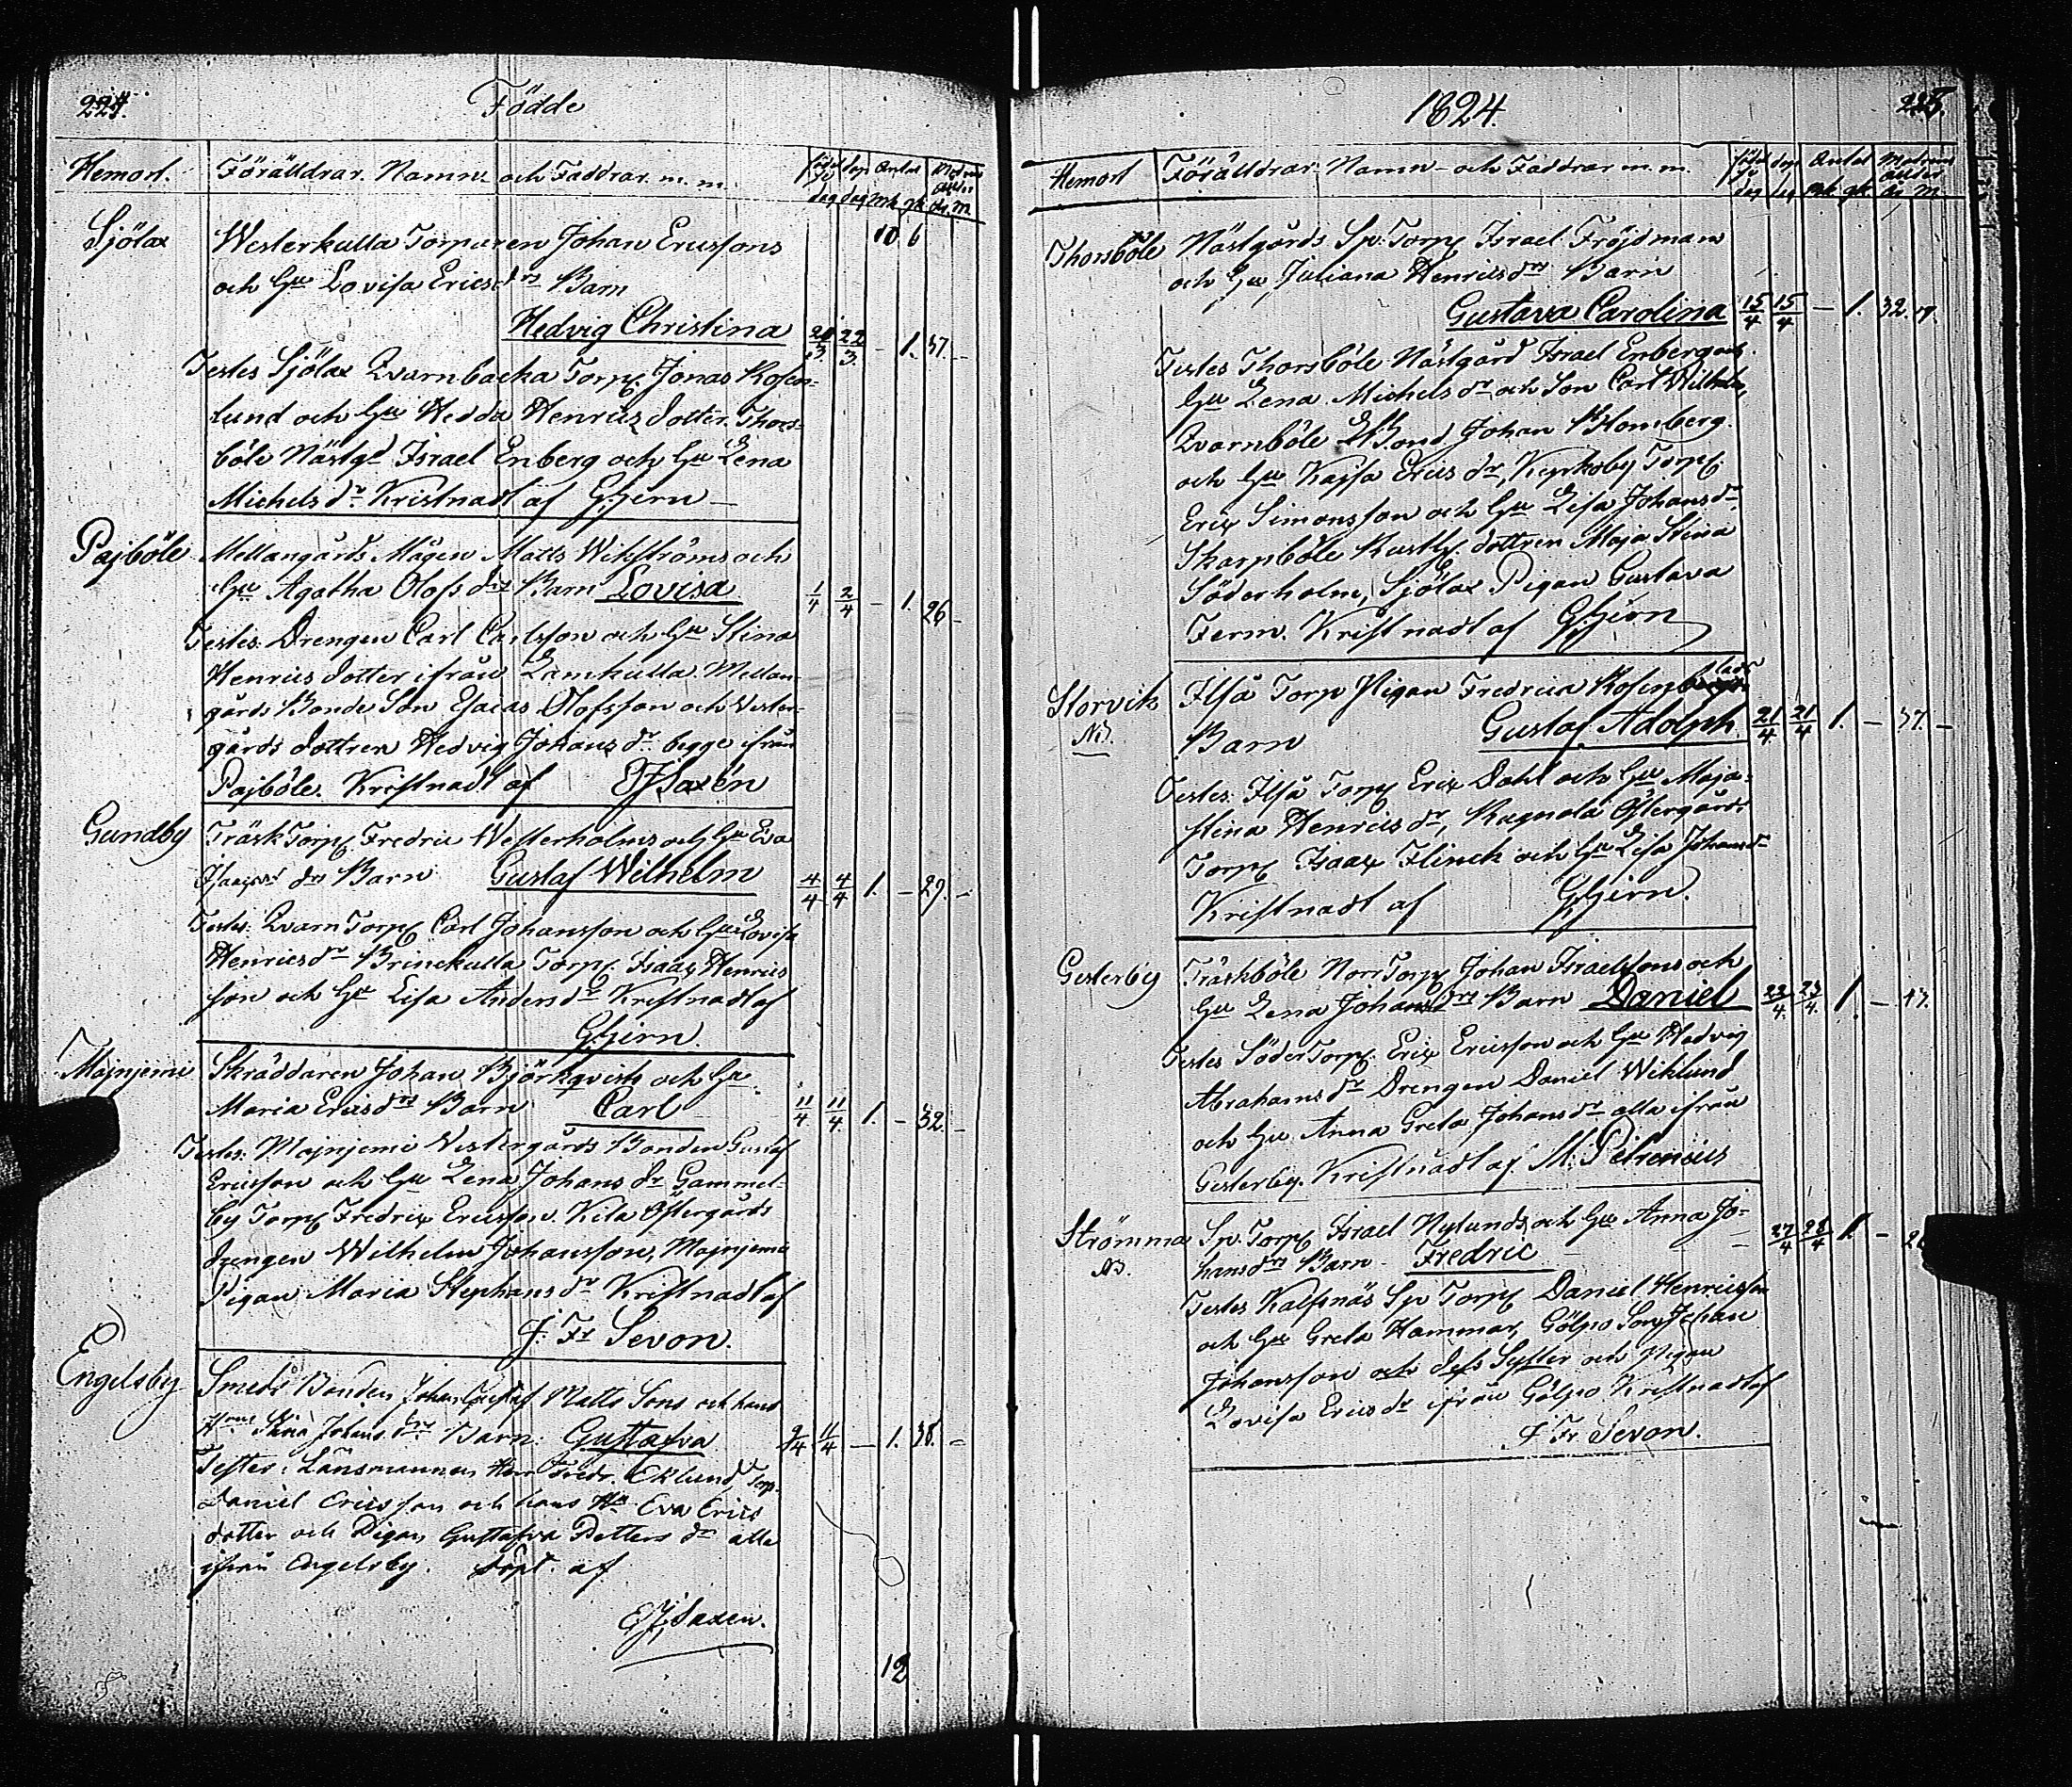 224.
Födde
Hemort.
Föräldrar. Namn och Faddrar. m. m.
födel dag
dop dag
Antal mk qk
Modrens ålder år. M.
10 6
Sjölax
Westerkulla Torparen Johan Ericssons
och Hu Lovisa Ericsdrs Barn
Hedvig Christina 22/3. - 1. 37. -
Testes Sjölax Qvarnbacka Torp. Jonas Rosen-
lund och Hu Hedda Henricsdotter. Thors-
böle Nästgd Israel Enberg och Hu Lena
Michelsdr Kristnadt af G. Hjern
Pajböle
Mellangårds Mågen Matts Wikströms och
Hu Agatha Olofsdrs Barn Lovisa 1/4 2/4 - 1. 26 -
Testes. Drengen Carl Carlsson och Hu Stina
Henricsdotter ifrån Lamkulla. Mellan-
gårds Bonde Son Esaias Olofsson och Wester-
gårds dottren Hedvig Johansdr begge ifrån
Pajböle. Kristnadt af EJSaxén
Gundby
Träsk Torp. Fredric Westerholms och Hu Eva
drs Barn Gustaf Wilhelm 4/4 4/4 1. - 29. -
Testes. Qvarn Torp. Carl Johansson och Hu Lovisa
Henricsdr Brinckulla Torp. Isaac Henrics
son och Hu Lisa Andersdr Kristnadt af
G. Hjern.
Majnjemi
Skräddaren Johan Björkqvists och Hu
Maria Ericsdrs Barn Carl 11/4 11/4 1. - 32. -
Testes. Majnjemi Westergårds Bonden Gustaf
Ericsson och Hu Lena Johansdr Gammel-
by Torp. Fredric Ericsson. Kila Östergårds
drengen Wilhelm Johansson, Majnjemi
Pigan Maria Stephansdr Kristnadt af
J. Fr Sevon.
Engelsby
Smeds Bonden Johan Gustaf Matts Sons och hans
Hus Stina Johansdrs Barn: Gustafva 9/4 11/4 - 1. 38. -
Testes: Länsmannen Herr Fredr. Eklund, Torp.
Daniel Ericsson och hans Hu Eva Erics
dotter och Pigan Gustafva Pettersdr alla
ifrån Engelsby. döpt. af
EJ,Saxen.
12
1824.
225.
Hemort
Föräldrar Namn och Faddrar m. m.
födel dag
dop dag
Antal mk qk
Modrens ålder år M.
Thorsböle
Nästgårds Sp. Torp. Israel Fröjdmans
och Hu Juliana Henricsdrs Barn
Gustava Carolina 15/4 15/4 - 1. 32.
Testes Thorsböle Nästgård Israel Enberg och
Hu Lena Michelsdr och Son Carl Wilhelm,
Qvarnböle Bond Johan Blomberg.
och Hu Kajsa Ericsdr, Kepkoby Torp.
Eric Simonsson och Hu Lisa Johansdr
Skarpböle Rusth. dottren Maja Stina
Söderholm, Sjölax Pigan Gustava
Ferm. Kristnadt af G. Hjern
Storvik
Nd.
Ilså Torp Pigan Fredrica Rosen
Barn Gustaf Adolph. 21/4. 21/4 1. - 37. -
Testes: Ilså Torp. Eric Dahl och Hu Maja-
stina Henricsdr, Rugnola Östergårds
Torp. Isaac Flinck och Hu Lisa Johansdr
Kristnadt af G. Hjern.
Gesterby
Träskböle Norr Torp. Johan Israelssons och
Hu Lena Johansdrs Barn Daniel 22/4. 23/4. 1. -
Testes Söder Torp. Eric Ericsson och Hu Hedvig
Abrahamsdr Drengen Daniel Wiklund
och Hu Anna Greta Johansdr alla ifrån
Gesterby. Kristnadt af M. Petrenius
Strömma
Nd.
Sp. Torp. Israel Nylunds och Hu Anna Jo-
hansdrs Barn Fredric 27/4 28/4 1. -
Testes Kalfsnäs Sp Torp. Daniel Henricsson
och Hu Greta Hammar, Gölpo Son Johan
Johansson och dess Syster och Pigan
Lovisa Ericsdr ifrån Gölpo Kristnadt af
J Fr Sevon.